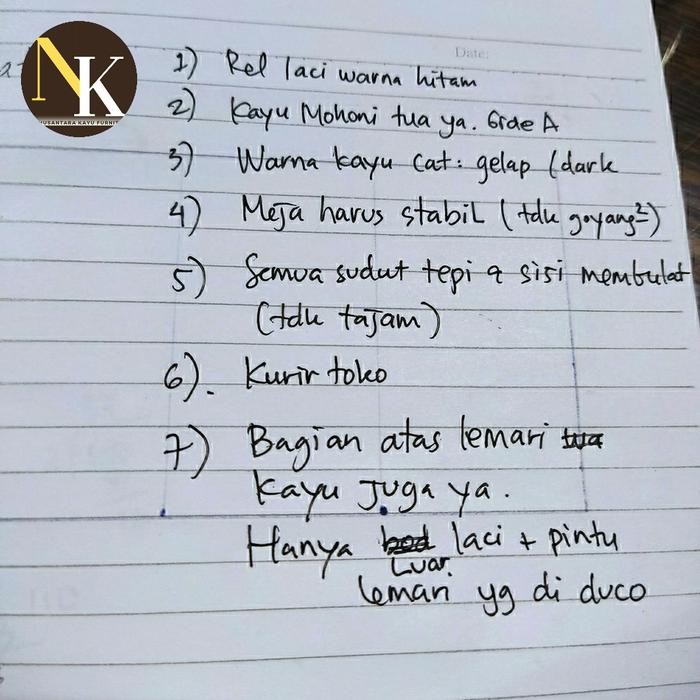 NK
NUSANTARA KAYU FURNIT
Date:
1) Rel laci warna hitam
2) Kayu Mohoni tua ya. Grde A
3) Warna kayu cat: gelap (dark
4) Meja harus stabil (tdk goyang²)
5) Semua sudut tepi & sisi membulat
(tdk tajam)
6). Kurir toko
7) Bagian atas lemari tua
kayu juga ya.
Hanya bod laci + pintu
Luar
lemari yg di duco